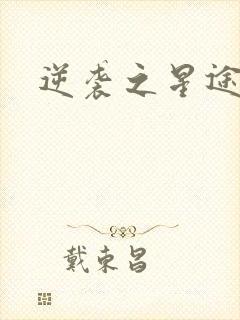 逆袭之星途
戴东昌